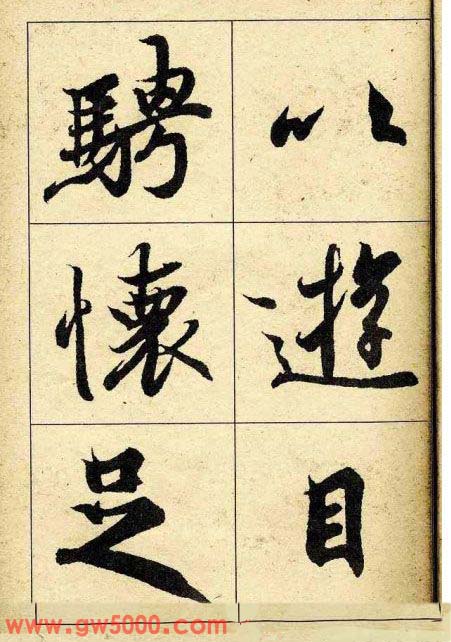 以遊目
騁懷足
www.gw5000.com